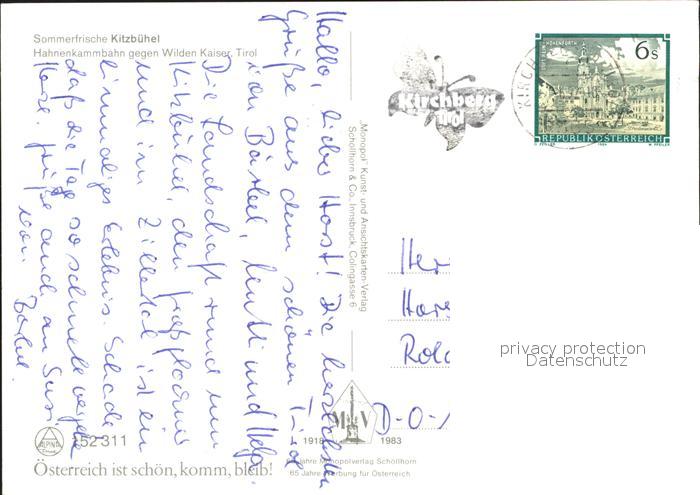 Sommerfrische Kitzbühel
Hahnenkammbahn gegen Wilden Kaiser, Tirol
Hallo, lieber Horst! Die herzlichsten
Grüße aus dem schönen Tirol
von Bärbel,
Die Landschaft rund um
Kitzbühel, den
und im Zillertal ist ein
einmaliges Erlebnis. Schade
daß die Tage so schnell vergehen
Grüße auch an Susi
von Bärbel.
"Monopol" Kunst- und Ansichtskarten-Verlag
Schöllhorn & Co., Innsbruck, Colingasse 6
Kirchberg
Tirol
KIRCH
STIFT REIN-HOHENFURTH
6 S
REPUBLIK ÖSTERREICH
O. ZEILLER 1984 W. PFEILER
Her
Hors
D-O-
privacy protection
Datenschutz
ALPINA
152311
MV
1918 1983
65 Jahre Monopolverlag Schöllhorn
65 Jahre Werbung für Österreich
Österreich ist schön, komm, bleib!